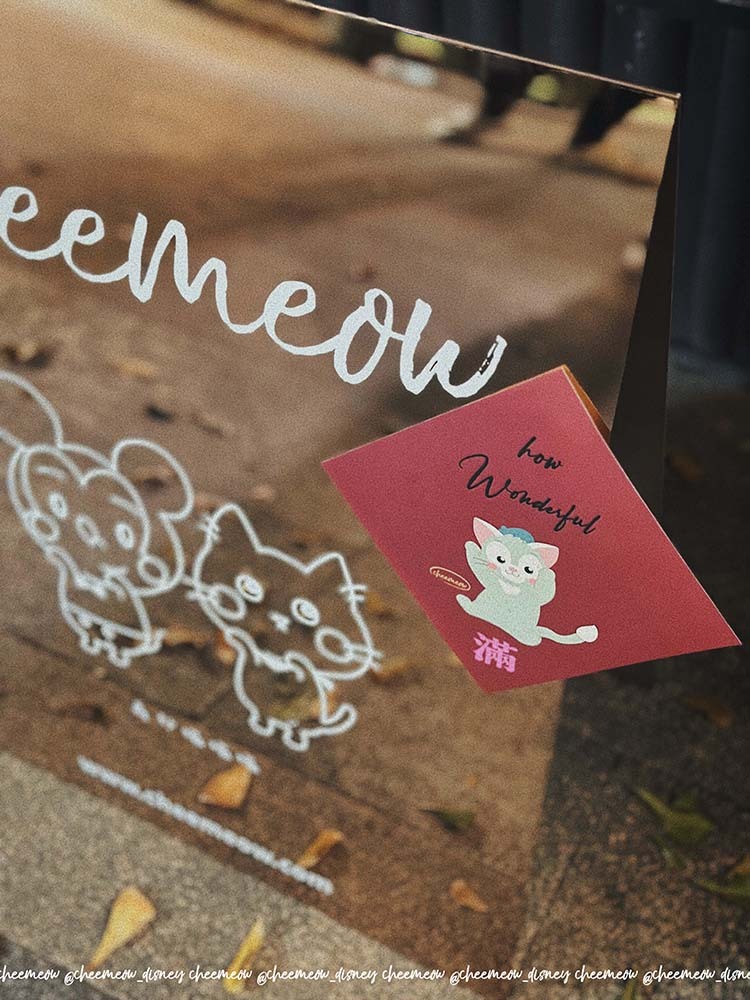 eemeow
how
Wonderful
cheemeow
滿
www.cheemeow.com
cheemeow @cheemeow_disney cheemeow @cheemeow_disney cheemeow @cheemeow_disney cheemeow @cheemeow_disne